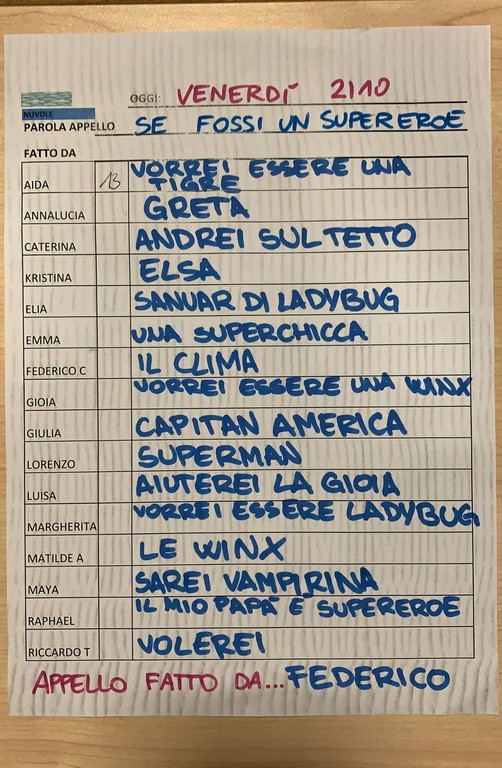 OGGI: VENERDÍ 2110
NUVOLE
PAROLA APPELLO SE FOSSI UN SUPEREROE
FATTO DA
AIDA 13 VORREI ESSERE UNA
TIGRE
ANNALUCIA GRETA
CATERINA ANDREI SUL TETTO
KRISTINA ELSA
ELIA SANUAR DI LADYBUG
EMMA UNA SUPERCHICCA
FEDERICO C IL CLIMA
GIOIA VORREI ESSERE UNA WINX
GIULIA CAPITAN AMERICA
LORENZO SUPERMAN
LUISA AIUTEREI LA GIOIA
MARGHERITA VORREI ESSERE LADYBUG
MATILDE A LE WINX
MAYA SAREI VAMPIRINA
RAPHAEL IL MIO PAPÀ E SUPEREROE
RICCARDO T VOLEREI
APPELLO FATTO DA...FEDERICO